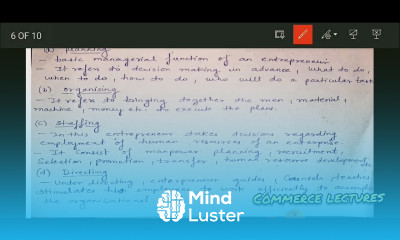 6 OF 10
(a) Planning
- basic managerial function of an entrepreneur.
- It refers to decision making in advance, what to do,
when to do, how to do, who will do a particular task
(b) Organising
- It refer to bringing together the men, material,
machine, money etc. to execute the plans.
(c) Staffing
- In this entrepreneur takes decisions regarding
employment of human resources of an enterprise.
- It consist of manpower planning, recruitment,
Selection, promotion, transfer, human resource development, etc.
(d) Directing
- Under directing, entrepreneur guides, teaches
stimulates his employees to work efficiently to
the organisational
Mind
Luster
COMMERCE LECTURES